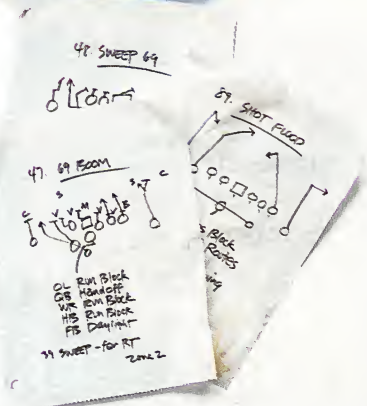 48. SWEEP 69
47. 69 BOOM
S
S
C
C
V
V
M
V
B
T
T
OL Run Block
QB Handoff
WR Run Block
HB Run Block
FB Daylight
39 SWEEP - for RT
ZONE 2
89. SHOT FLOOD
s Block
Routes
ing